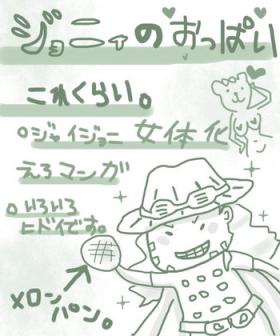 ジョニィのおっぱい
これくらい。
○ジャイジョニ女体化
えろマンガ
○いろいろヒドイです。
メロン
パン。